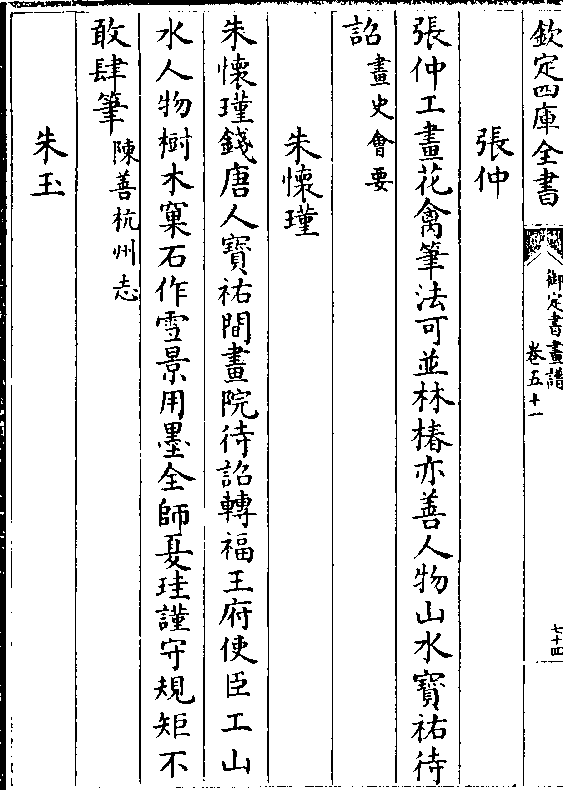 欽定四庫全書
御定書畫譜
卷五十一
七十四
張仲
張仲工畫花禽筆法可並林椿亦善人物山水寶祐待
詔畫史會要
朱懷瑾
朱懷瑾錢唐人寶祐間畫院待詔轉福王府使臣工山
水人物樹木窠石作雪景用墨全師夏珪謹守規矩不
敢肆筆陳善杭州志
朱玉